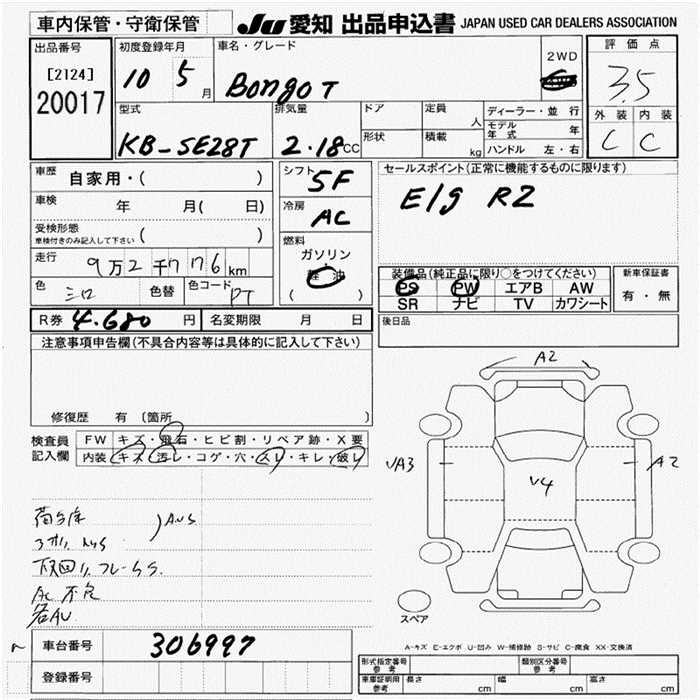 車内保管・守衛保管
JU 愛知 出品申込書 JAPAN USED CAR DEALERS ASSOCIATION
出品番号
[2124]
20017
初度登録年月
10 5 月
車名・グレード
Bongo T
2WD
評価点
3.5
外装 内装
C C
型式
KB-SE28T
排気量
2.18 CC
ドア
形状
定員
人
積載
kg
ディーラー・並行
モデル年式 年
ハンドル 左・右
車歴
自家用・( )
車検
年 月( 日)
受検形態
車検付きのみ記入して下さい ( )
走行
9万2千776 km
色
シロ
色替
色コード
PT
シフト
5F
冷房
AC
燃料
ガソリン
軽油
( )
セールスポイント(正常に機能するものに限ります)
E/g R2
装備品(純正品に限り○をつけてください)
PS PW エアB AW
SR ナビ TV カワシート
新車保証書
有・無
後日品
R券 4.680 円
名変期限 月 日
注意事項申告欄(不具合内容等は具体的に記入して下さい)
修復歴 有 〔箇所 〕
検査員
記入欄
FW キズ・飛石・ヒビ割・リペア跡・X要
内装 キズ・汚レ・コゲ・穴・スレ・キレ・破レ
AC不良
各AU
A2
UA3
A2
V4
スペア
A-キズ E-エクボ U-凹み W-補修跡 S-サビ C-腐食 XX-交換済
車台番号
306997
登録番号
形式指定番号
参考
類別区分番号
参考
車庫証明用
参考
長さ cm
幅 cm
高さ cm